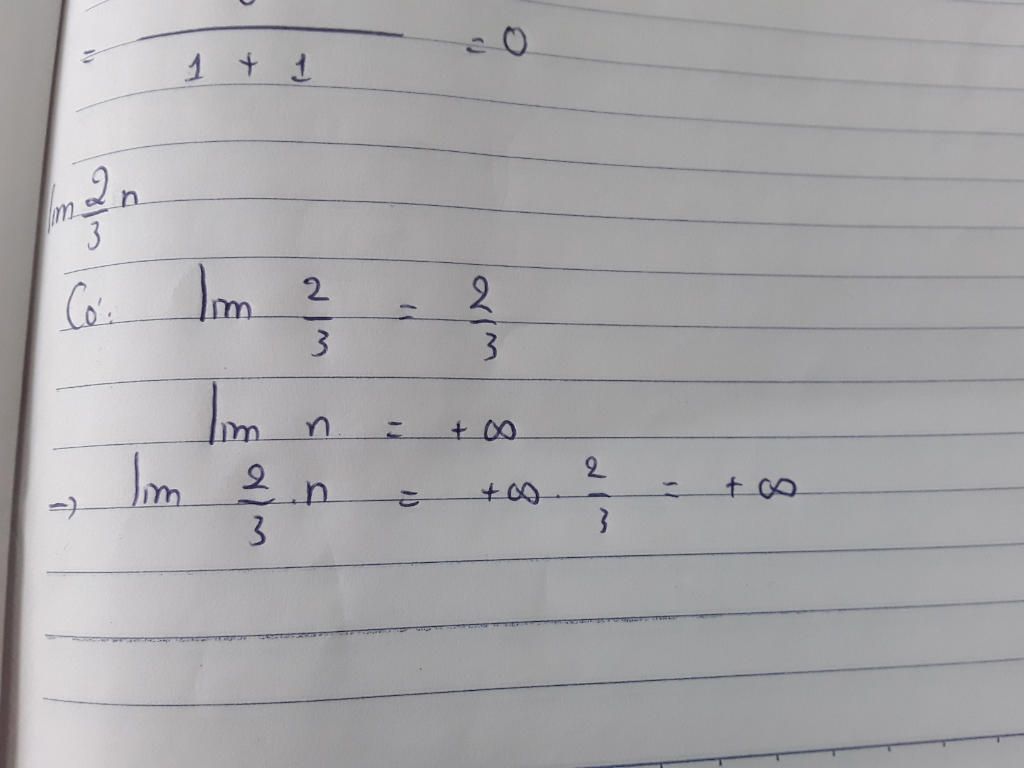 = ― / 1 + 1 = 0
lim 2/3 n
Có: lim 2/3 = 2/3
lim n = +∞
=> lim 2/3 . n = +∞ . 2/3 = +∞